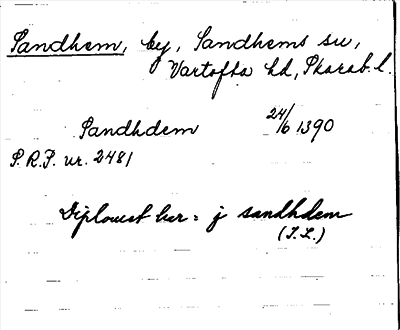 Sandhem, by, Sandhems sn,
Vartofta hd, Skarab. l.
Sandhdem 24/6 1390
S.R.P. nr. 2481
Diplomet har: j sandhdem
(I.L.)